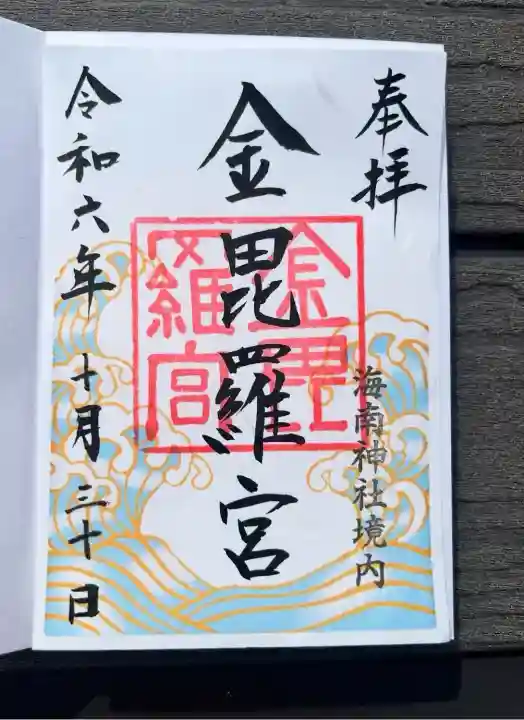 奉拝
海南神社境内
金毘羅宮
金毘羅宮
令和六年 十月 三十日